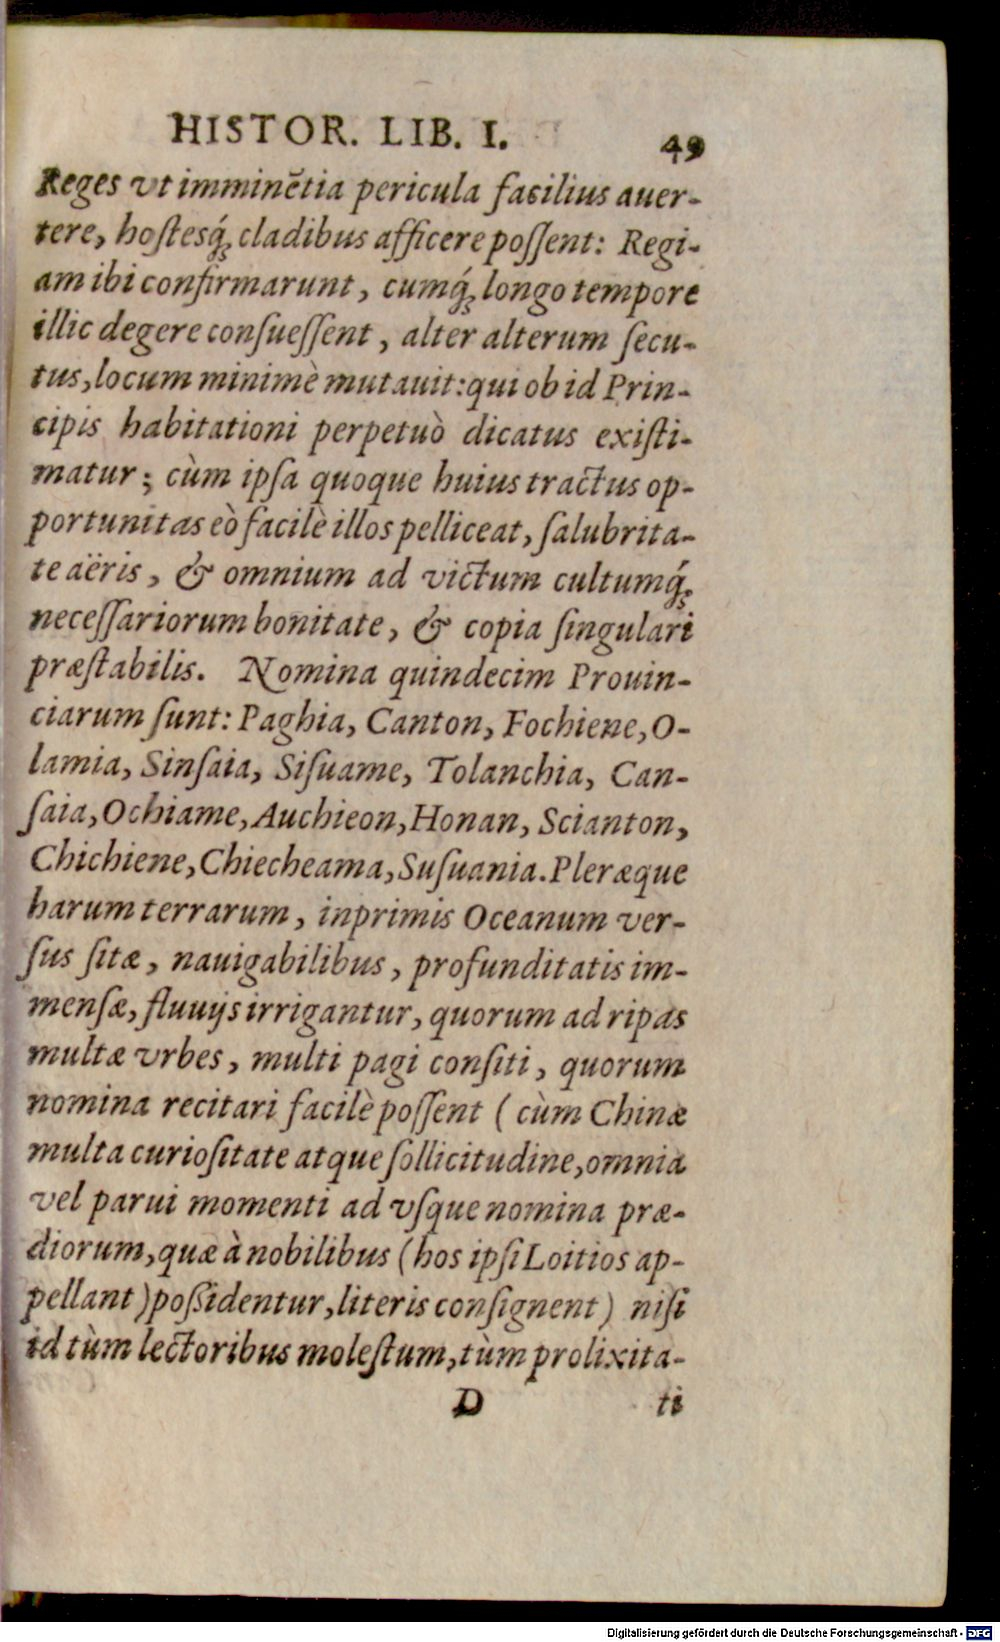 HISTOR. LIB. I. 49
Reges vt imminẽtia pericula facilius auer-
tere, hoſtesq́; cladibus afficere poſſent: Regi-
am ibi confirmarunt, cumq́; longo tempore
illic degere conſueſſent, alter alterum ſecu-
tus, locum minimè mutauit: qui ob id Prin-
cipis habitationi perpetuò dicatus exiſti-
matur; cùm ipſa quoque huius tractus op-
portunitas eò facilè illos pelliceat, ſalubrita-
te aëris, & omnium ad victum cultumq́;
neceſſariorum bonitate, & copia ſingulari
præſtabilis. Nomina quindecim Prouin-
ciarum ſunt: Paghia, Canton, Fochiene, O-
lamia, Sinſaia, Siſuame, Tolanchia, Can-
ſaia, Ochiame, Auchieon, Honan, Scianton,
Chichiene, Chiecheama, Suſuania. Pleræque
harum terrarum, inprimis Oceanum ver-
ſus ſitæ, nauigabilibus, profunditatis im-
menſæ, fluuijs irrigantur, quorum ad ripas
multæ vrbes, multi pagi conſiti, quorum
nomina recitari facilè poſſent ( cùm Chinæ
multa curioſitate atque ſollicitudine, omnia
vel parui momenti ad vſque nomina præ-
diorum, quæ à nobilibus (hos ipſi Loitios ap-
pellant) poſſidentur, literis conſignent) niſi
id tùm lectoribus moleſtum, tùm prolixita-
D ti
Digitalisierung gefördert durch die Deutsche Forschungsgemeinschaft - DFG